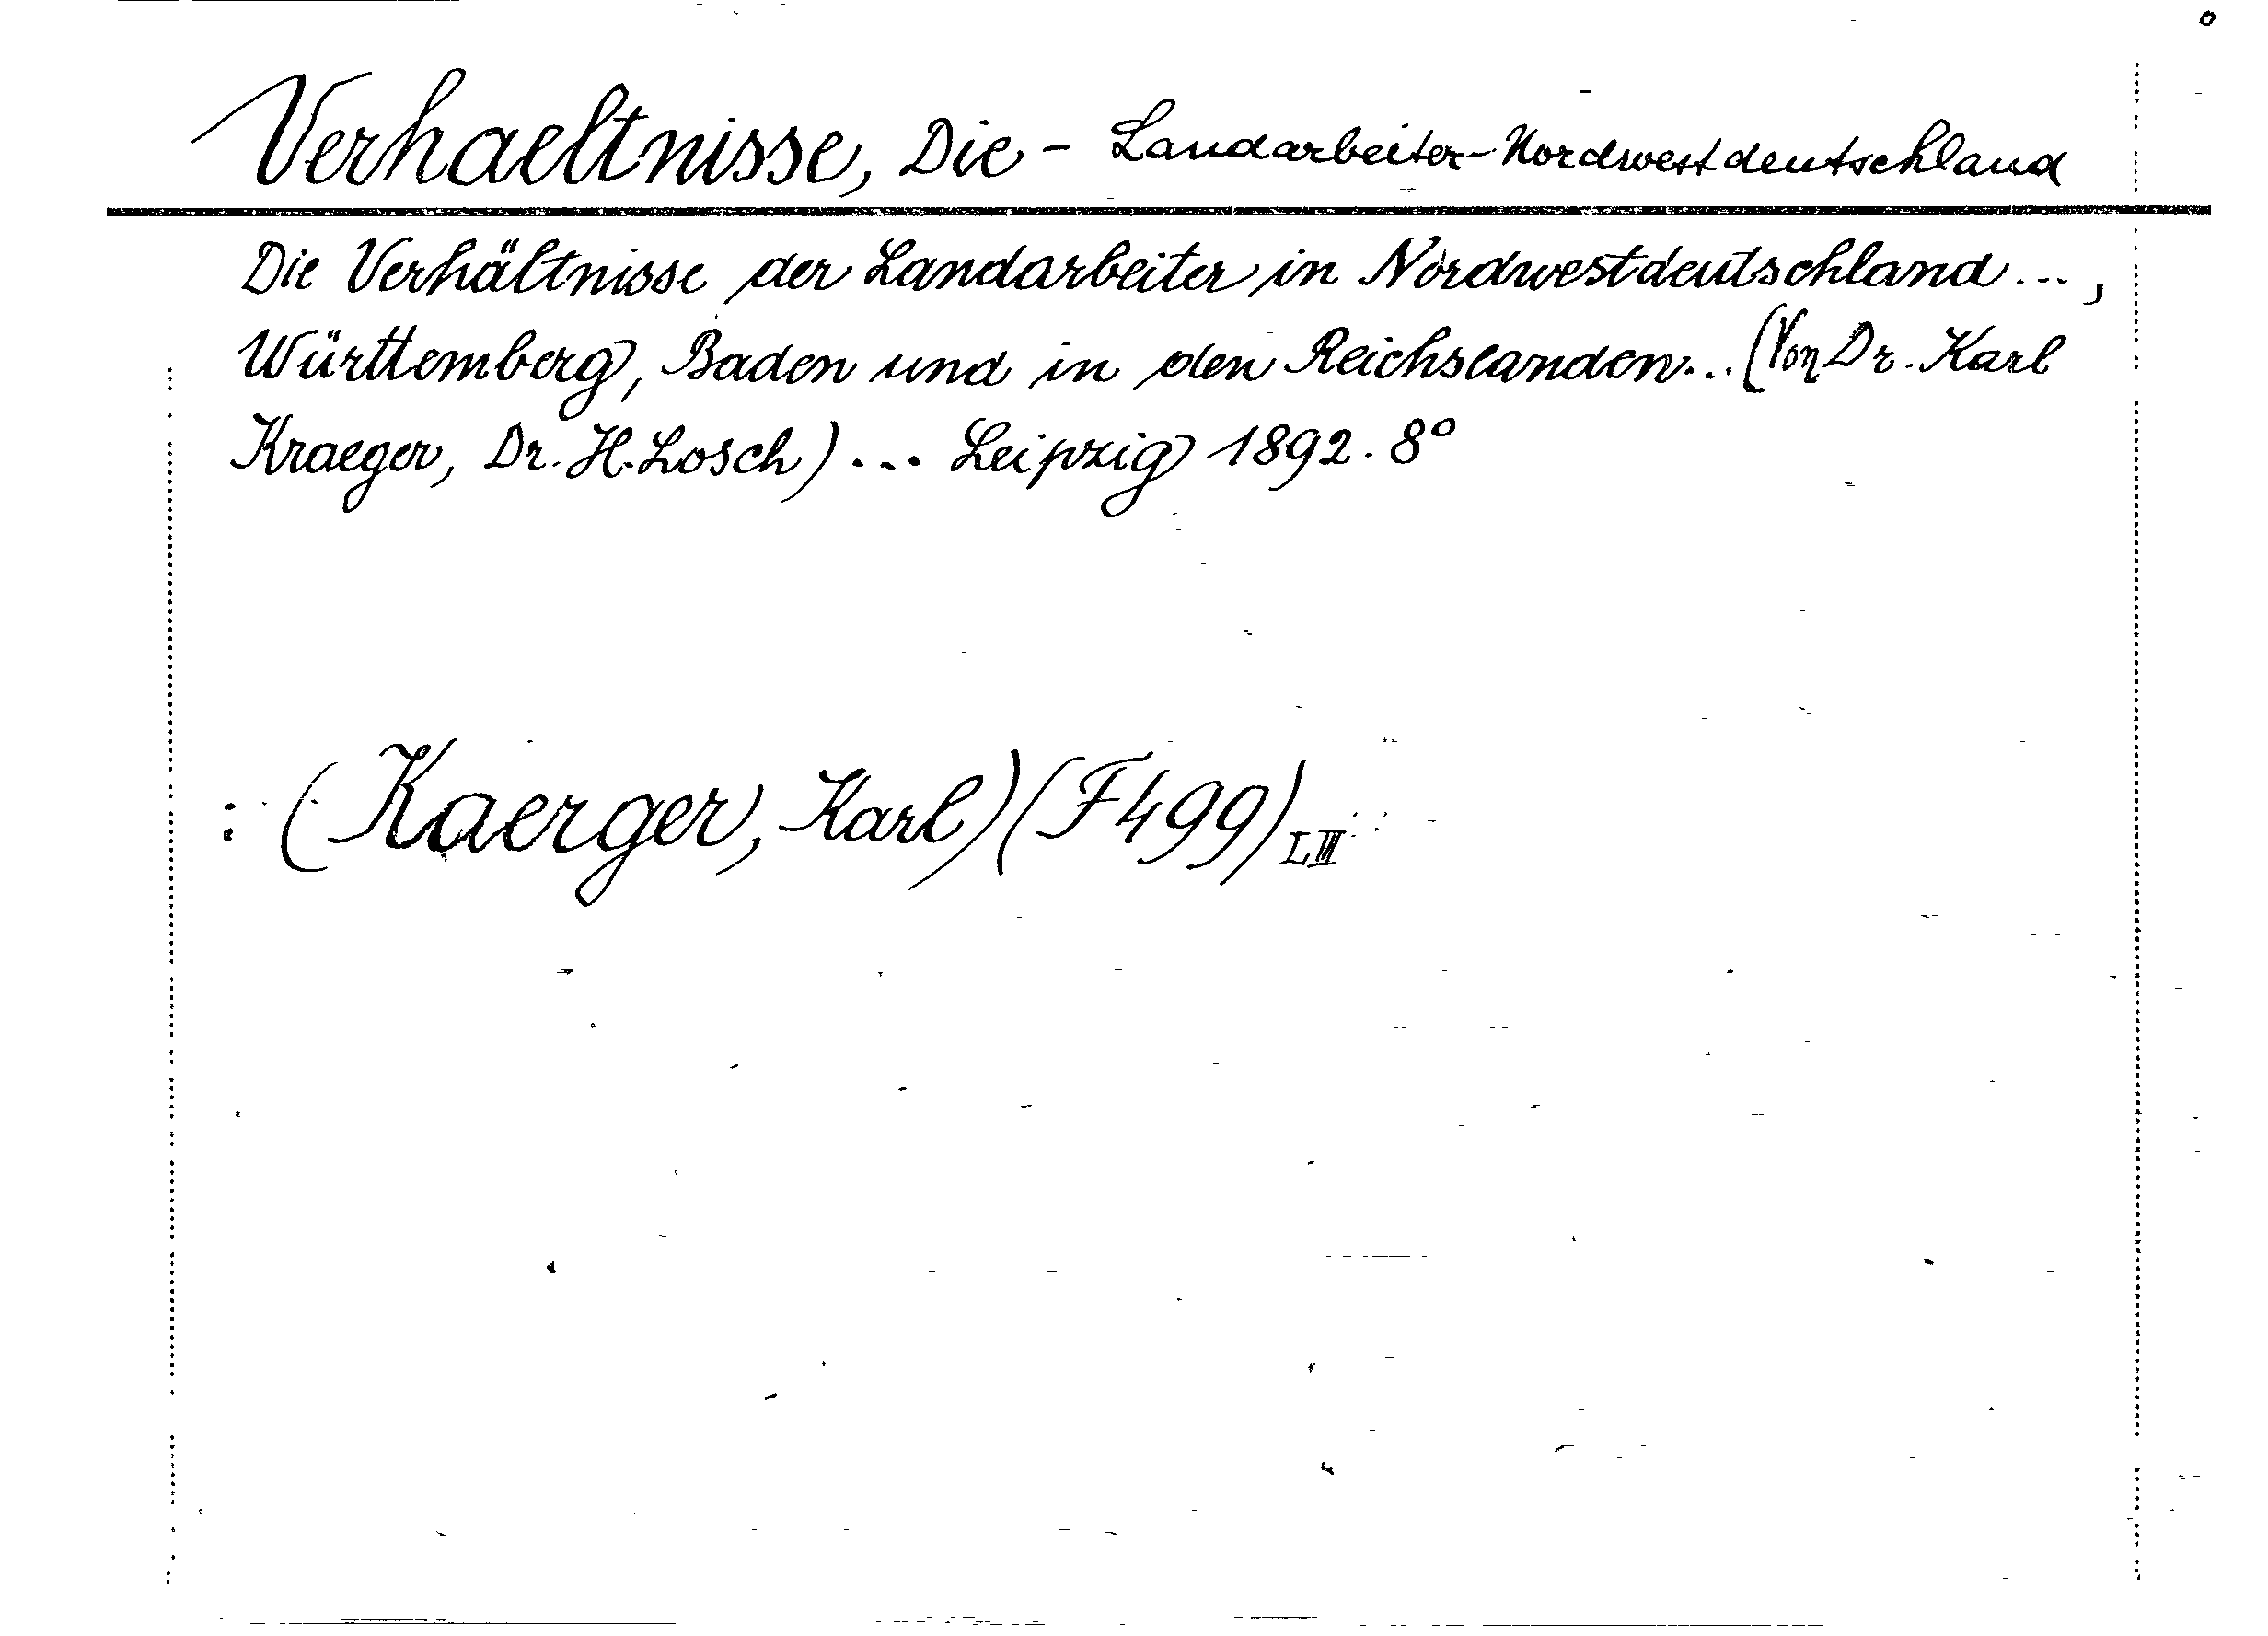 Verhaeltnisse, Die - Landarbeiter-Nordwestdeutschland
Die Verhältnisse der Landarbeiter in Nordwestdeutschland...,
Württemberg, Baden und in den Reichslanden... (Von Dr. Karl
Kraeger, Dr. H. Losch) ... Leipzig 1892. 8°
: (Kaerger, Karl) (F499) LIII